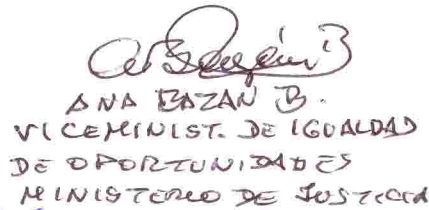 ANA BAZAN B.
VICEMINIST. DE IGUALDAD
DE OPORTUNIDADES
MINISTERIO DE JUSTICIA